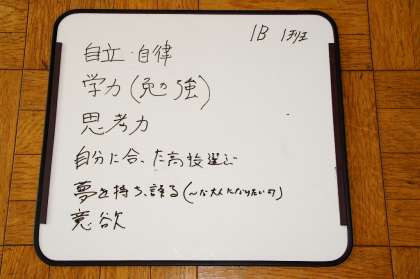 1B 1班
自立・自律
学力(勉強)
思考力
自分に合った高校選び
夢を持ち、語る(〜な大人になりたいカ)
意欲